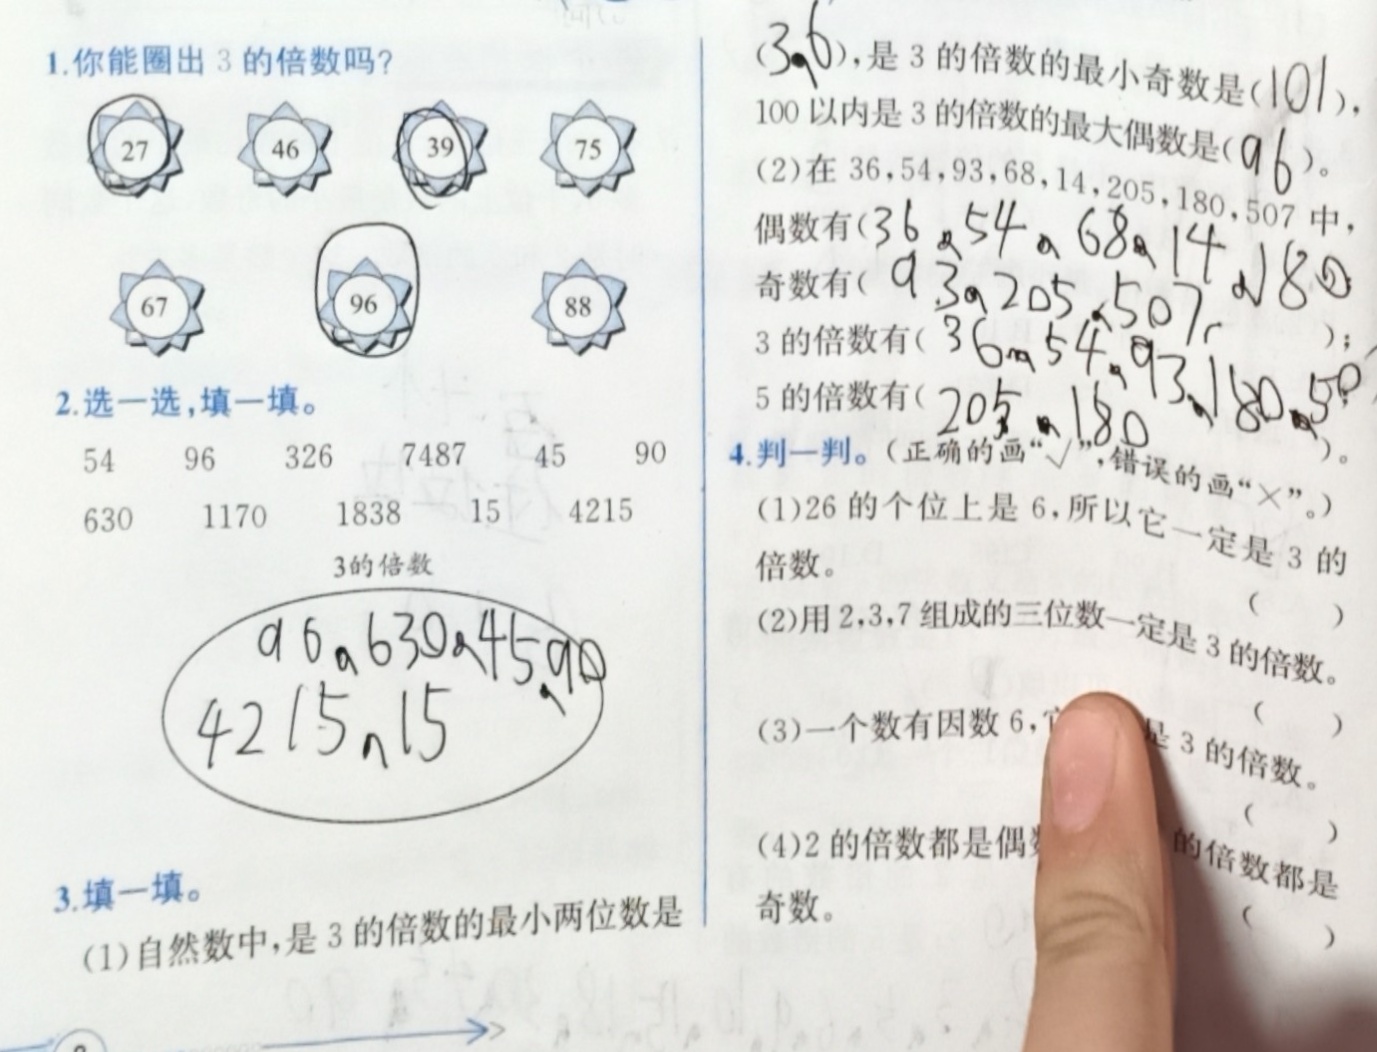 1.你能圈出 3 的倍数吗?
27 46 39 75
67 96 88
2.选一选,填一填。
54 96 326 7487 45 90
630 1170 1838 15 4215
3的倍数
96、630、45、90
4215、15
3.填一填。
(1)自然数中,是 3 的倍数的最小两位数是
(3、6),是 3 的倍数的最小奇数是(101),
100 以内是 3 的倍数的最大偶数是(96)。
(2)在 36,54,93,68,14,205,180,507 中,
偶数有(36、54、68、14、180;
奇数有(93、205、507、 );
3 的倍数有(36、54、93、180、50;
5 的倍数有(205、180 )。
4.判一判。(正确的画“√”,错误的画“×”。)
(1)26 的个位上是 6,所以它一定是 3 的
倍数。 ( )
(2)用 2,3,7 组成的三位数一定是 3 的倍数。
( )
(3)一个数有因数 6, 是 3 的倍数。
( )
(4)2 的倍数都是偶 的倍数都是
奇数。 ( )